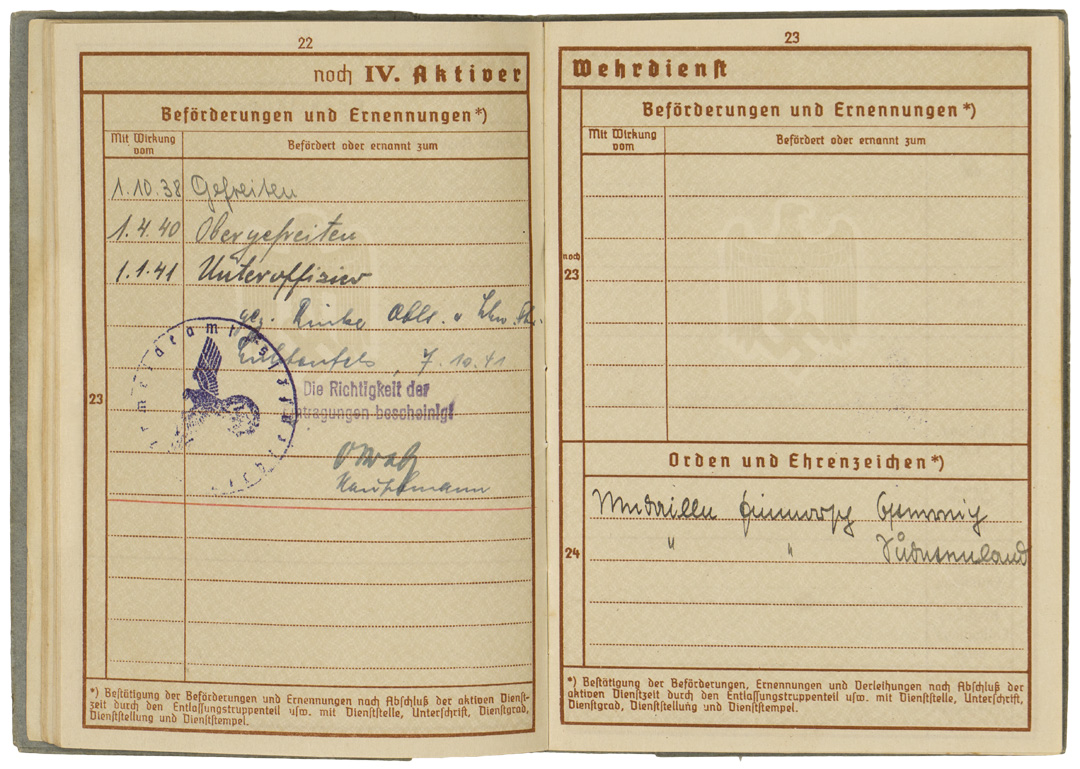 22
noch IV. Aktiver
Beförderungen und Ernennungen*)
Mit Wirkung vom
Befördert oder ernannt zum
1.10.38 Gefreiten
1.4.40 Obergefreiten
1.1.41 Unteroffizier
gez.
7.10.41
23
Die Richtigkeit der
Eintragungen bescheinigt
Hauptmann
*) Bestätigung der Beförderungen und Ernennungen nach Abschluß der aktiven Dienst-
zeit durch den Entlassungstruppenteil usw. mit Dienststelle, Unterschrift, Dienstgrad,
Dienststellung und Dienststempel.
23
Wehrdienst
Beförderungen und Ernennungen*)
Mit Wirkung vom
Befördert oder ernannt zum
noch
23
Orden und Ehrenzeichen*)
Medaille Einmarsch Ostmark
24
" " Sudetenland
*) Bestätigung der Beförderungen, Ernennungen und Verleihungen nach Abschluß der
aktiven Dienstzeit durch den Entlassungstruppenteil usw. mit Dienststelle, Unterschrift,
Dienstgrad, Dienststellung und Dienststempel.